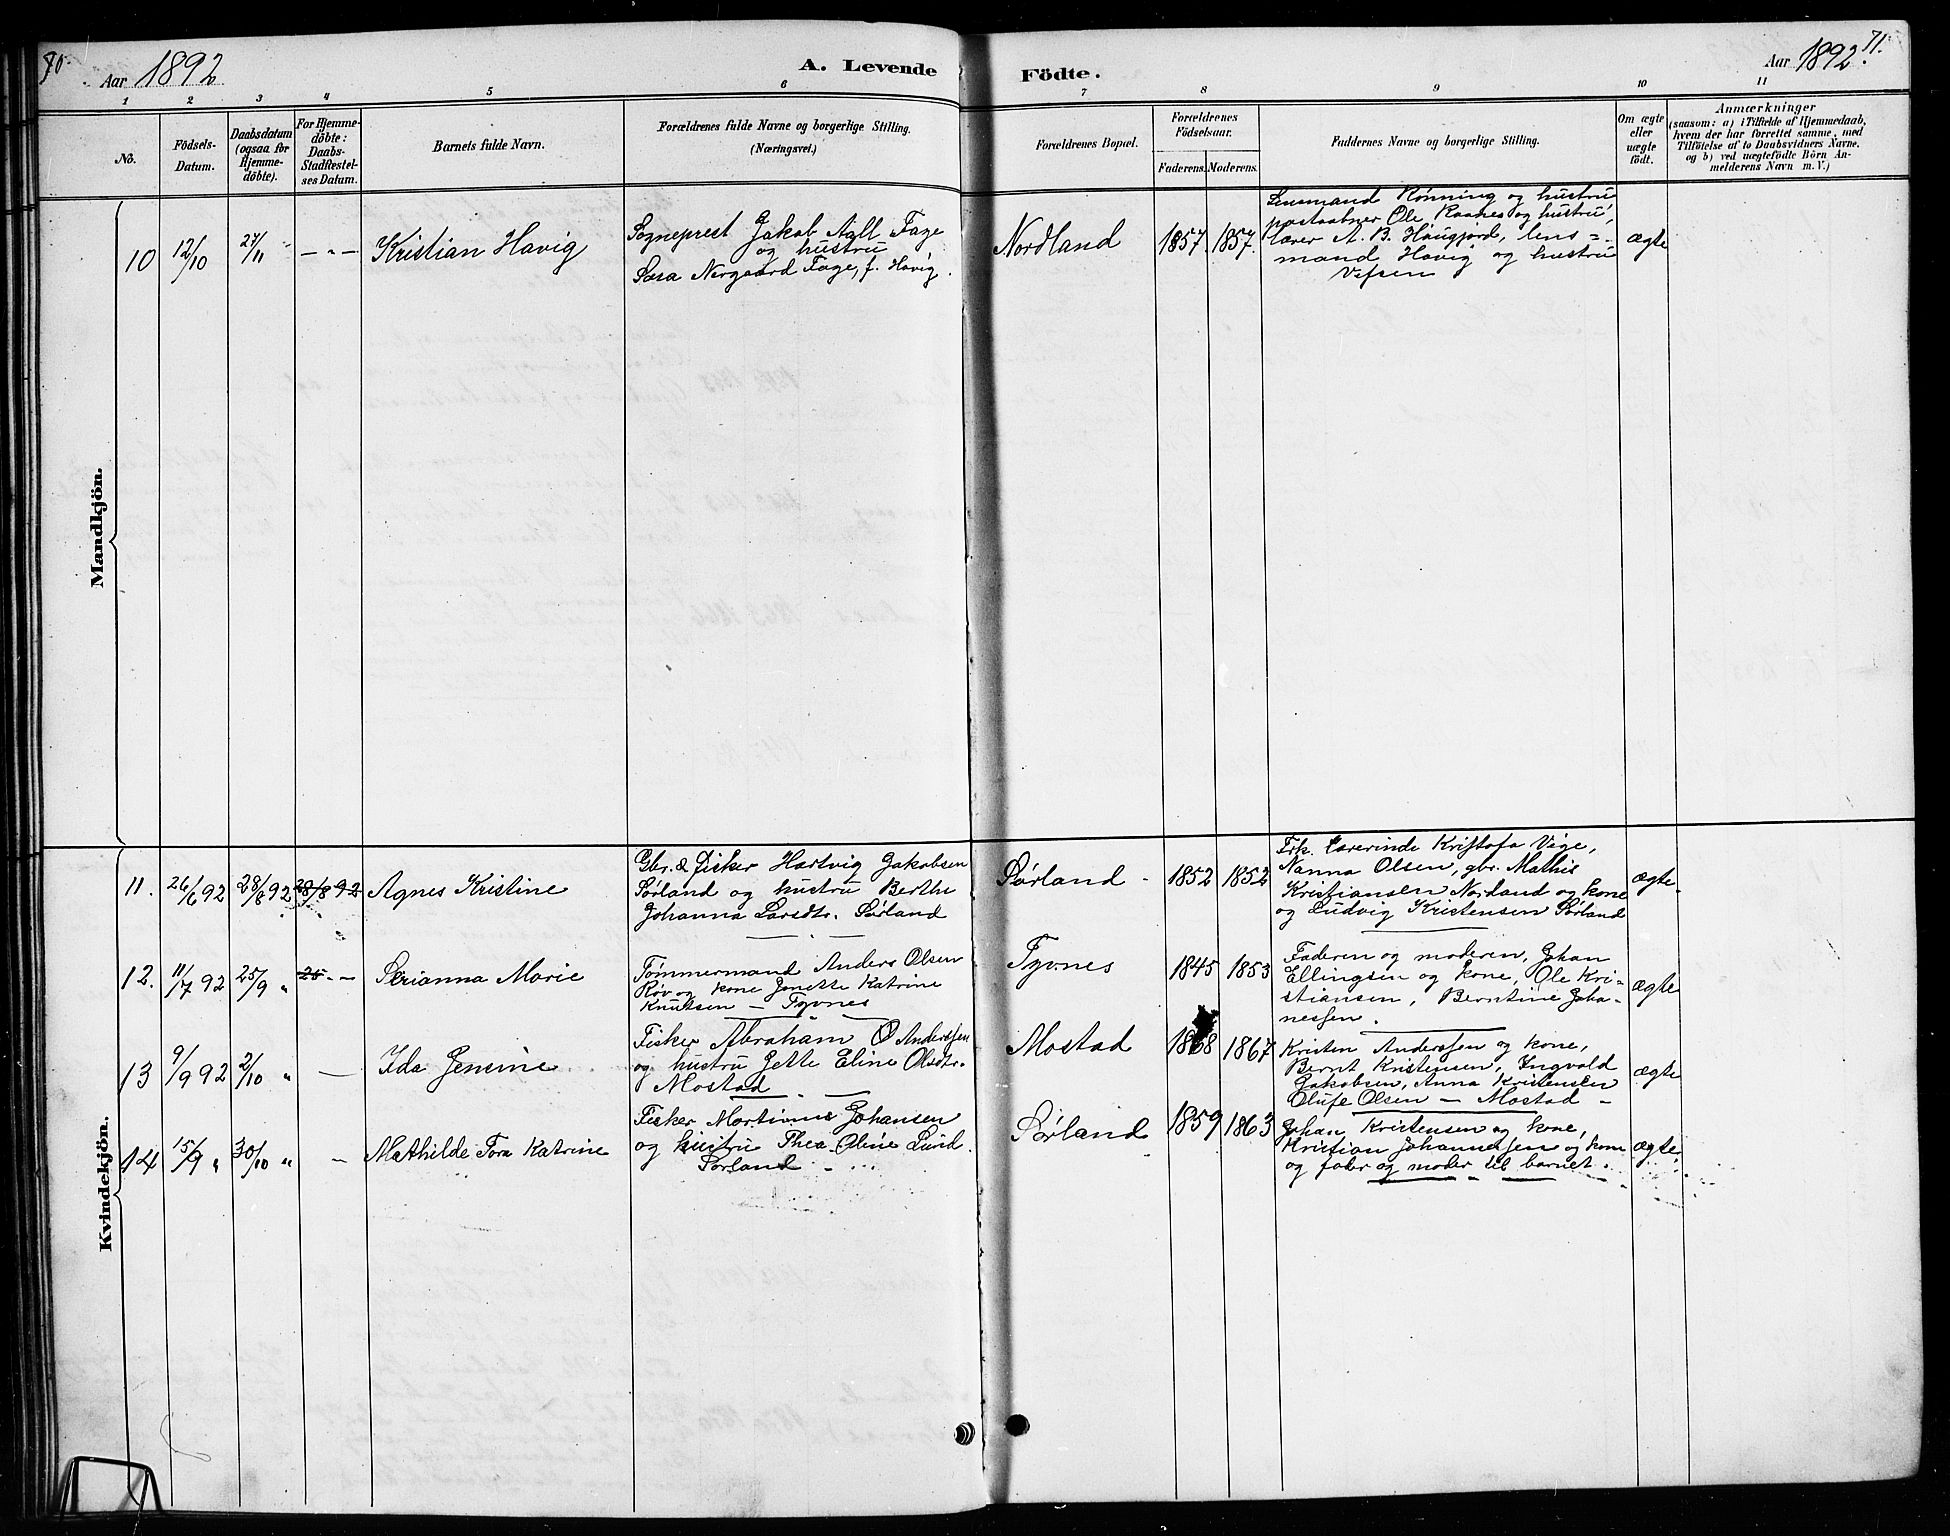 70.
Aar 1892
A. Levende Födte.
Aar 1892.
71.
1 2 3 4 5 6 7 8 9 10 11
No.
Födsels-
Datum.
Daabsdatum
(ogsaa for
Hjemme-
döbte).
For Hjemme-
döbte:
Daabs-
Stadfæstel-
ses Datum.
Barnets fulde Navn.
Forældrenes fulde Navne og borgerlige Stilling.
(Næringsvei.)
Forældrenes Bopæl.
Forældrenes
Födselsaar.
Faderens. Moderens.
Faddernes Navne og borgerlige Stilling.
Om ægte
eller
uægte
födt.
Anmærkninger
(saasom: a) i Tilfælde af Hjemmedaab,
hvem der har forrettet samme, med
Tilföielse af to Daabsvidners Navne.
og b) ved uægtefödte Börn An-
melderens Navn m.V.)
Mandkjön.
10 12/10 27/11 — " — Kristian Havig
Sogneprest Jakob Fage
og hustru
Sara Norgaard Fage, f. Havig.
Nordland 1857. 1857.
Lensmand Rønning og hustru
postaabner Ole Kaanes og hustru,
lærer A. B. Haugjord, lens=
mand Havig og hustru
Vefsen
ægte
Kvindekjön.
11. 26/6 92 28/8 92 28/8 92 Agnes Kristine
Gbr. & fisker Hartvig Jakobsen
Sørland og hustru Berthe
Johanna Larsdtr. Sørland
Sørland - 1852 1852
Frk. Lærerinde Kristofa Vige,
Nanna Olsen, gbr. Mathis
Kristiansen Norland og kone
og Ludvig Kristensen Sørland
ægte
12. 11/17 92 25/9 " 25 - — Serianna Marie
Tømmermand Anders Olsen
Røv og kone Jenette Katrine
Knutsen — Tyvnes
Tyvnes 1845 1853
Faderen og moderen, Johan
Ellingsen og kone, Ole Kri-
stiansen, Berntine Joha-
nessen.
ægte
13 9/9 92 2/10 " — Ida Jensine
Fisker Abraham O Anderssen
og hustru Jette Eline Olsdtr.
Mostad
Mostad 1868 1867
Kristen Anderssen og kone,
Bernt Kristensen, Ingvald
Jakobsen, Anna Kristensen
Olufe Olsen — Mostad -
ægte
14 15/9 " 30/10 " — Mathilde Tora Katrine
Fisker Martinus Johansen
og hustru Thea Oline Lund.
Sørland
Sørland 1859 1863
Johan Kristensen og kone,
Kristian Johannessen og kone
og fader og moder til barnet.
ægte